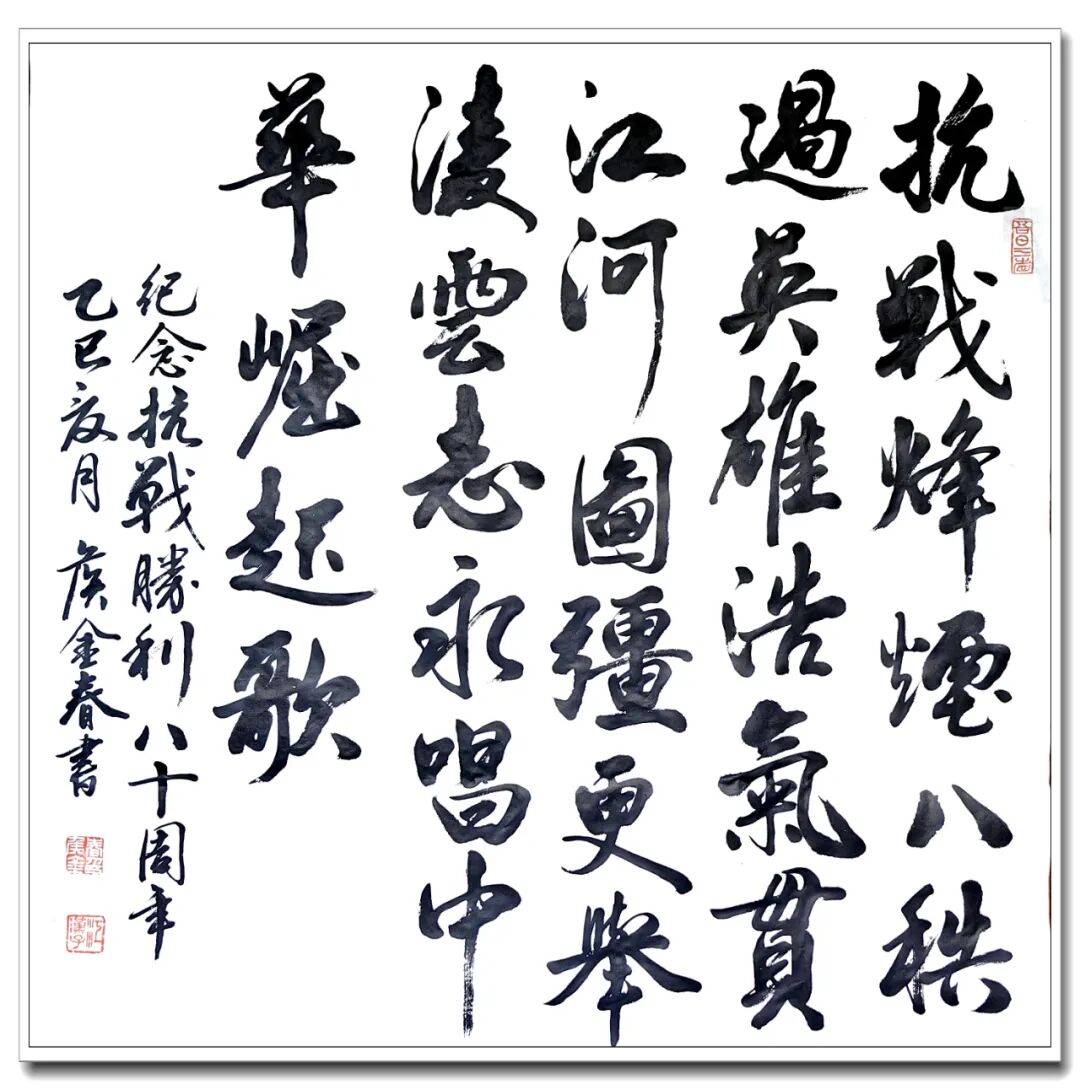 抗戰烽煙八秩
過英雄浩氣貫
江河圖疆更舉
凌雲志永唱中
華崛起歌
纪念抗戰勝利八十周年
乙巳夏月侯金春書